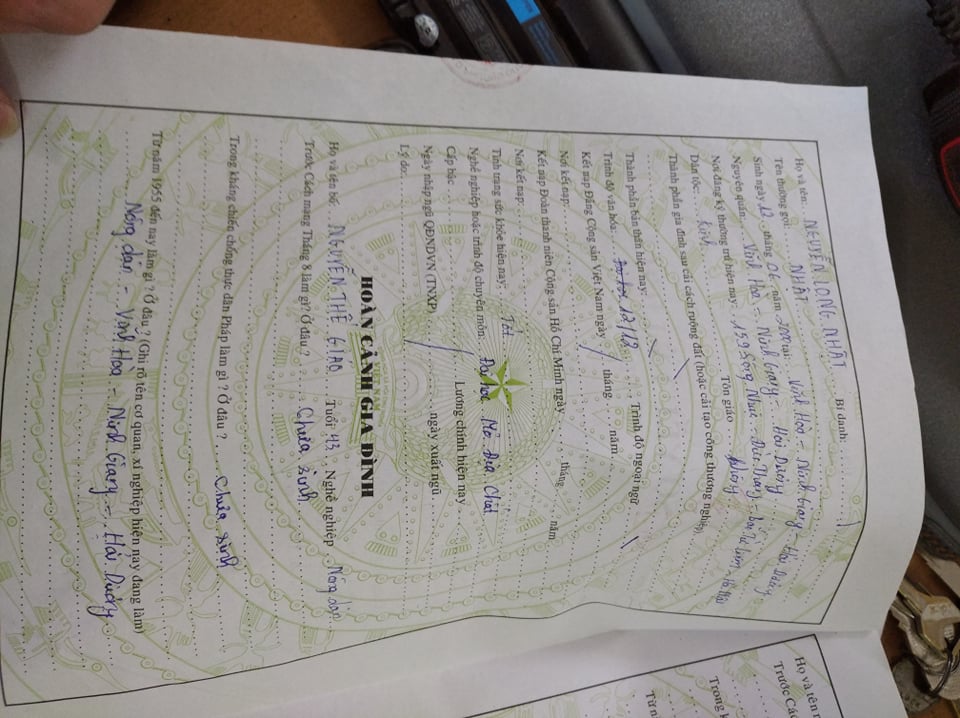 Họ và tên: NGUYỄN LONG NHẬT Bí danh:
Tên thường gọi: NHẬT
Sinh ngày 12 tháng 06 năm 2000 tại: Vĩnh Hoà - Ninh Giang - Hải Dương
Nguyên quán: Vĩnh Hoà - Ninh Giang - Hải Dương
Nơi đăng ký thường trú hiện nay: 159 Sông Nhuệ - Đức Thắng - Bắc Từ Liêm - Hà Nội
Dân tộc: Kinh Tôn giáo không
Thành phần gia đình sau cải cách ruộng đất (hoặc cải tạo công thương nghiệp)
Thành phần bản thân hiện nay:
Trình độ văn hóa: 12/12 Trình độ ngoại ngữ
Kết nạp Đảng Cộng sản Việt Nam ngày tháng năm
Nơi kết nạp:
Kết nạp Đoàn thanh niên Cộng sản Hồ Chí Minh ngày tháng năm
Nơi kết nạp:
Tình trạng sức khỏe hiện nay: Tốt
Nghề nghiệp hoặc trình độ chuyên môn: Đại học Mỏ Địa Chất
Cấp bậc Lương chính hiện nay
Ngày nhập ngũ QĐNDVN (TNXP) ngày xuất ngũ
Lý do:
VIỆT NAM
HOÀN CẢNH GIA ĐÌNH
Họ và tên bố: NGUYỄN THẾ GIÁO Tuổi 43 Nghề nghiệp Nông dân
Trước Cách mạng Tháng 8 làm gì? Ở đâu ? Chưa sinh
Trong kháng chiến chống thực dân Pháp làm gì ? Ở đâu ? Chưa sinh
Từ năm 1955 đến nay làm gì ? Ở đâu ? (Ghi rõ tên cơ quan, xí nghiệp hiện nay đang làm)
Nông dân - Vĩnh Hoà - Ninh Giang - Hải Dương
Họ và tên
Trước Các
Trong k
Từ n